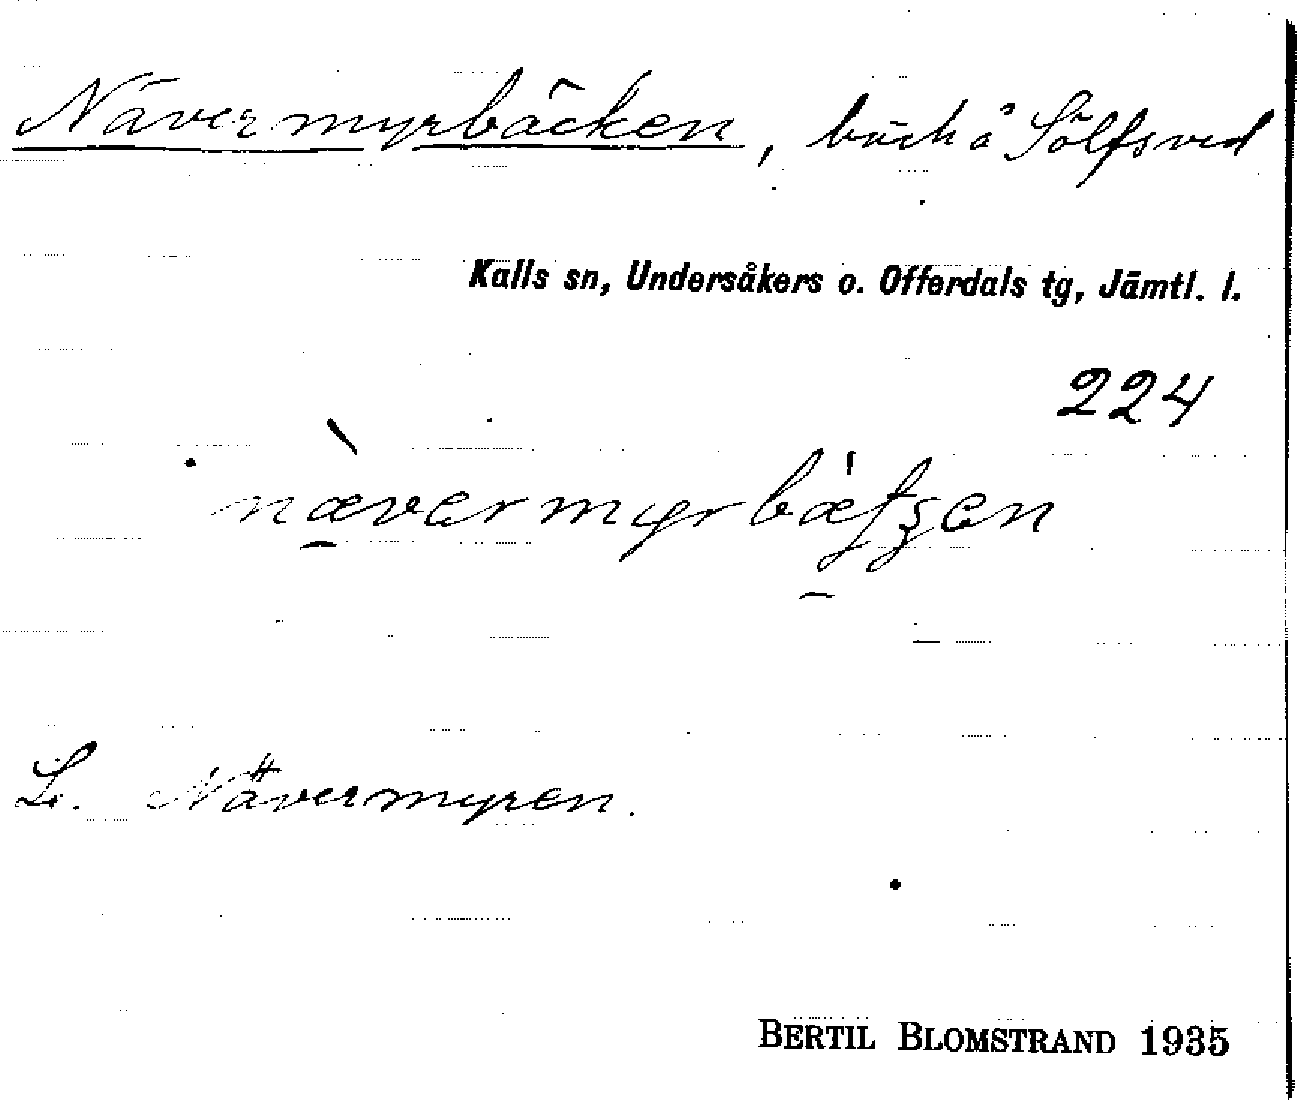 Nävermyrbäcken, bäck å Sölfsved
Kalls sn, Undersåkers o. Offerdals tg, Jämtl. l.
224
nævermyrbæʈʂen
Se Nävermyren.
BERTIL BLOMSTRAND 1935